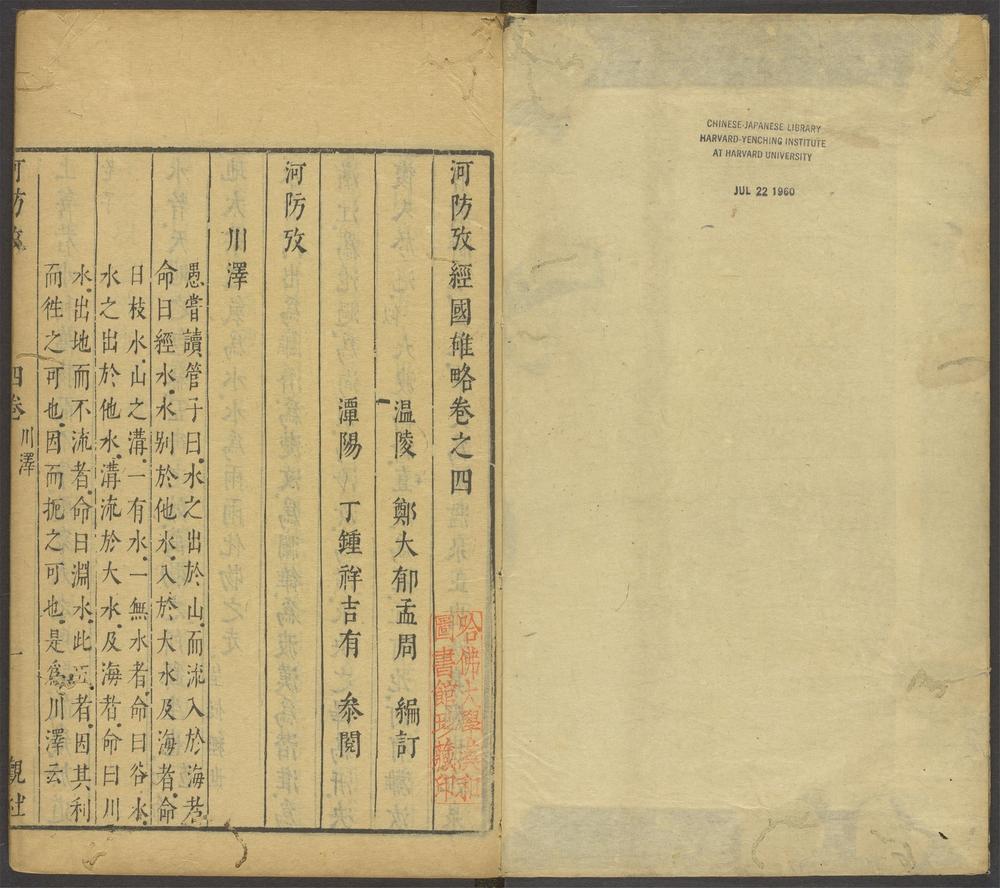 CHINESE-JAPANESE LIBRARY
HARVARD-YENCHING INSTITUTE
AT HARVARD UNIVERSITY
JUL 22 1960
河防攷經國雄略卷之四
溫陵 鄭大郁孟周 編訂
潭陽 丁鍾祥吉有 叅閱
哈佛大學漢和
圖書館珍藏印
河防攷
川澤
愚嘗讀管子曰水之出於山而流入於海者
命曰經水水別於他水入於大水及海者命
曰枝水山之溝一有水一無水者命曰谷水
水之出於他水溝流於大水及海者命曰川
水出地而不流者命曰淵水此五者因其利
而徃之可也因而扼之可也是爲川澤云
河防攷 四卷 川澤 一 觀社